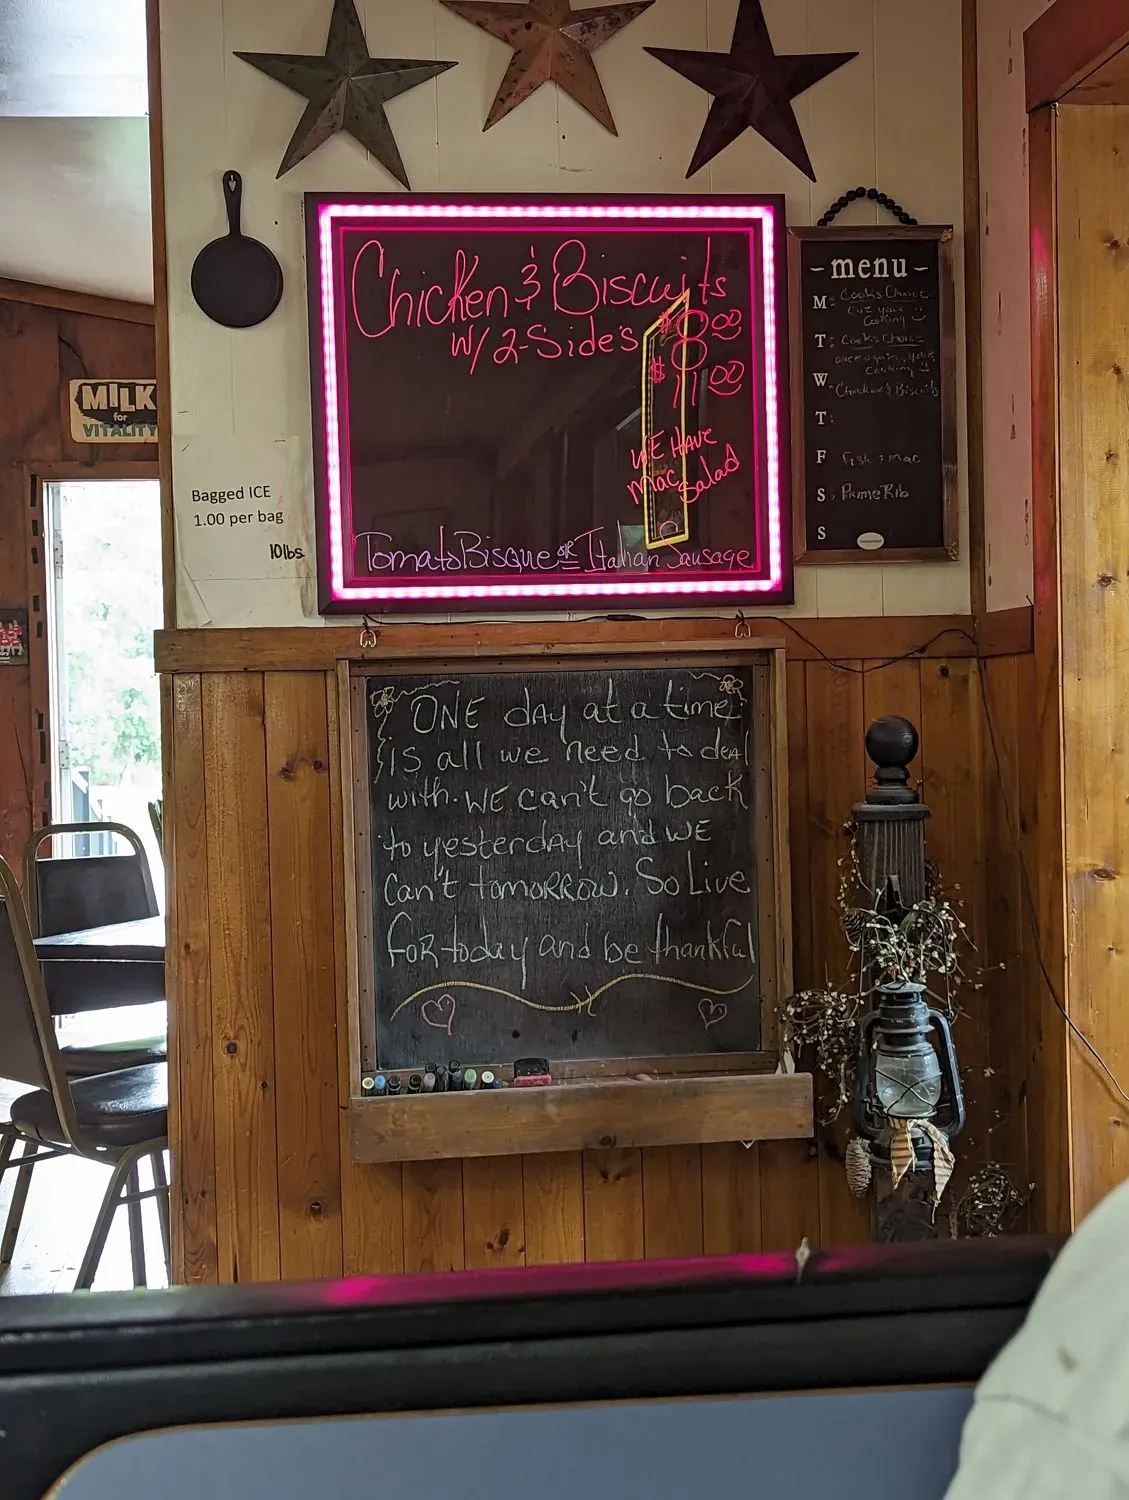 Chicken & Biscuits
W/ 2-Side's
$ 11.00
WE HAVE
Mac Salad
Tomato Bisque OR Italian Sausage
MILK
for
VITALITY
Bagged ICE
1.00 per bag
10lbs
-menu-
M: Cooks Choice
Cuz your
Cooking
T: Cooks Choice
once again, your
cooking
W: Chicken & Biscuits
T:
F Fish & mac
S: Prime Rib
S
ONE day at a time
is all we need to deal
with. WE can't go back
to yesterday and WE
can't tomorrow. So Live
for today and be thankful